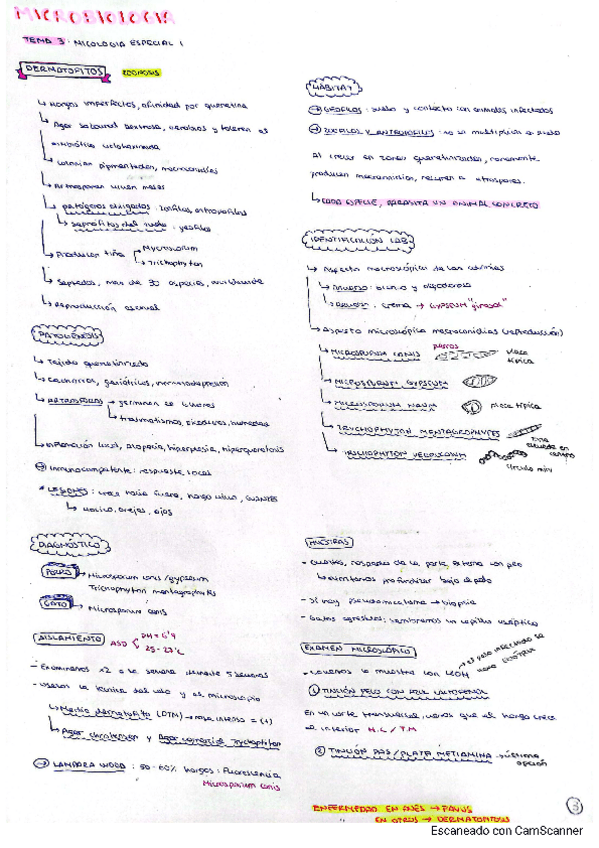 MICROBIOLOGIA
TEMA 3: MICOLOGIA ESPECIAL 1
DERMATOFITOS ZOONOSIS
Hongos imperfectos, afinidad por queratina
Agar sabouraud dextrosa, aerobios y toleran el
antibiótico cicloheximida
Colonias pigmentadas, macroconidias
Artrosporas viven meses
patógenos obligados: zoofilos, antropofilos
saprofitos del suelo: geofilos
Producen tiña Microsporum
Trichophyton
Septados, mas de 30 especies,
Reproducción asexual
PATOGÉNESIS
Tejido queratinizado
Cachorros, geriátricos, inmunodepresión
ARTROSPORAS germinan en 6 horas
traumatismos, picaduras, humedad
Inflamación local, alopecia, hiperplasia, hiperqueratosis
Inmunocompetente: respuesta local
LESIONES: crece hacia fuera, hongo vivo,
hocico, orejas, ojos
DIAGNÓSTICO
PERRO Microsporum canis/gypseum
Trichophyton mentagrophytes
GATO Microsporum canis
AISLAMIENTO ASD
25-27ºC
- Examinamos x2 a la semana durante 5 semanas
- usamos la lámina del celo y al microscopio
Medio dermatofito (DTM) rosa intenso = (+)
Agar y Agar Trychophyton
LAMPARA WOOD: 50-60% hongos: Fluorescencia
Microsporum canis
HÁBITAT
GEOFILOS: suelo y contacto con animales infectados
ZOOFILOS Y ANTROPOFILOS: no se multiplican en suelo
Al crecer en zonas queratinizadas, raramente
producen macroconidias, recurren a artrosporas.
CADA ESPECIE, PARASITA UN ANIMAL CONCRETO
IDENTIFICACION LAB.
Aspecto macroscópico de las colonias
ANVERSO: blanco y algodonoso
REVERSO: crema GYPSEUM "girasol"
Aspecto microscópico macroconidias (reproducción)
perros
MICROSPORUM CANIS placa típica
MICROSPORUM GYPSEUM
MICROSPORUM NANUM placa típica
TRYCHOPHYTON MENTAGROPHYTES
TRICHOPHYTON VERRUCOSUM
círculo mini
MUESTRAS
- Guantes, raspado de la parte externa con pelo
evitamos profundizar bajo el pelo
- Si hay pseudomicetoma biopsia
- Gatos agresivos: sembramos un cepillo aséptico
EXAMEN MICROSCÓPICO
- Lavamos la muestra con KOH
1 TINCIÓN PELO CON AZUL LACTOFENOL
En un corte transversal, vemos que el hongo crece
al interior M.C / T.M
2 TINCIÓN PAS/PLATA METIAMINA última
opción
ENFERMEDAD EN AVES → FAVUS
EN OTROS → DERMATOFITOSIS
3
Escaneado con CamScanner